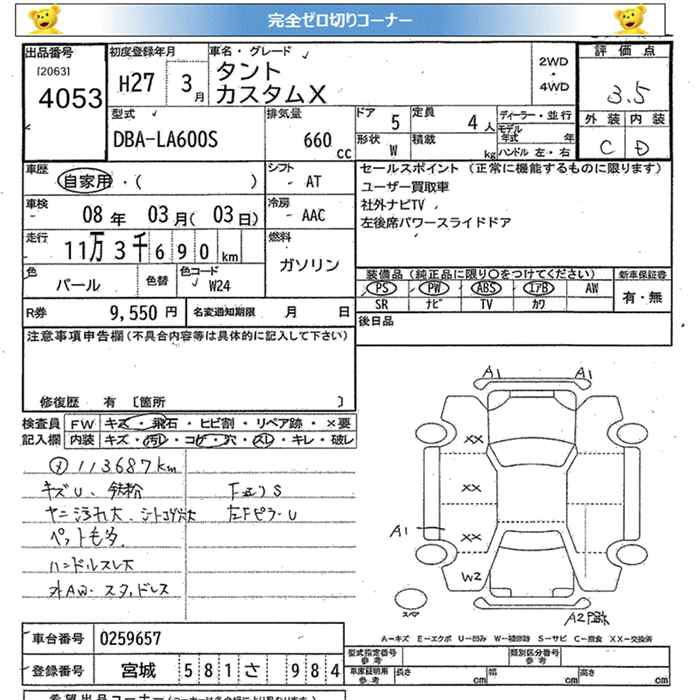 完全ゼロ切りコーナー
出品番号 [2063] 4053
初度登録年月 H27 3月
車名・グレード タント カスタムX
2WD ・ 4WD
評価点 3.5
外装 内装 C D
型式 DBA-LA600S
排気量 660 cc
ドア 5 定員 4人
形状 W 積載 kg
ディーラー・並行
モデル年式 年
ハンドル 左・右
車歴 自家用・( )
シフト AT
セールスポイント (正常に機能するものに限ります)
ユーザー買取車
社外ナビTV
左後席パワースライドドア
車検 08年 03月(03日)
冷房 AAC
走行 11万3千690km
燃料 ガソリン
色 パール 色替 色コード W24
装備品 (純正品に限り○をつけてください) 新車保証書
PS PW ABS エアB AW 有・無
SR ナビ TV カワ
R券 9,550円 名変通知期限 月 日
後日品
注意事項申告欄(不具合内容等は具体的に記入して下さい)
修復歴 有 〔箇所 〕
検査員記入欄
FW キズ・飛石・ヒビ割・リペア跡・×要
内装 キズ・汚レ・コゲ・穴・スレ・キレ・破レ
113687km
キズU、鉄粉
ヤニ汚れ大、シートコゲ穴大 左Fピラ-U
ペットも多
ハンドルスレ大
外AW・スタッドレス
A1 A1
XX
XX
A1 XX
W2
スペア
A2
A－キズ E－エクボ U－凹み W－補修跡 S－サビ C－腐食 XX－交換済
車台番号 0259657
型式指定番号 参考 類別区分番号 参考
登録番号 宮城 581 さ 984
車庫証明用 参考 長さ cm 幅 cm 高さ cm
希望出品コーナー